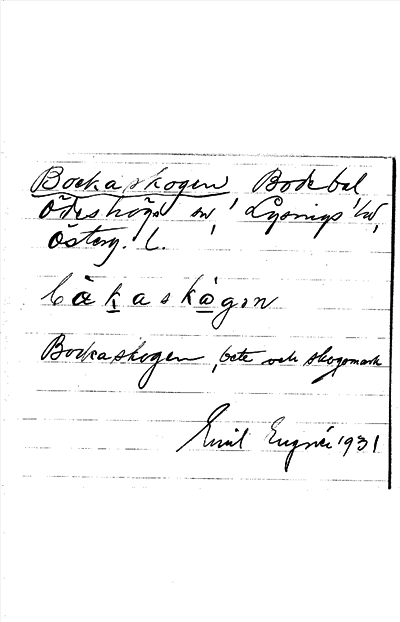 Bockaskogen Bodebol
Ödeshögs sn, Lysings hd,
Österg. l.
bàkaskògən
Bockaskogen, bete och skogsmark
Emil 1931